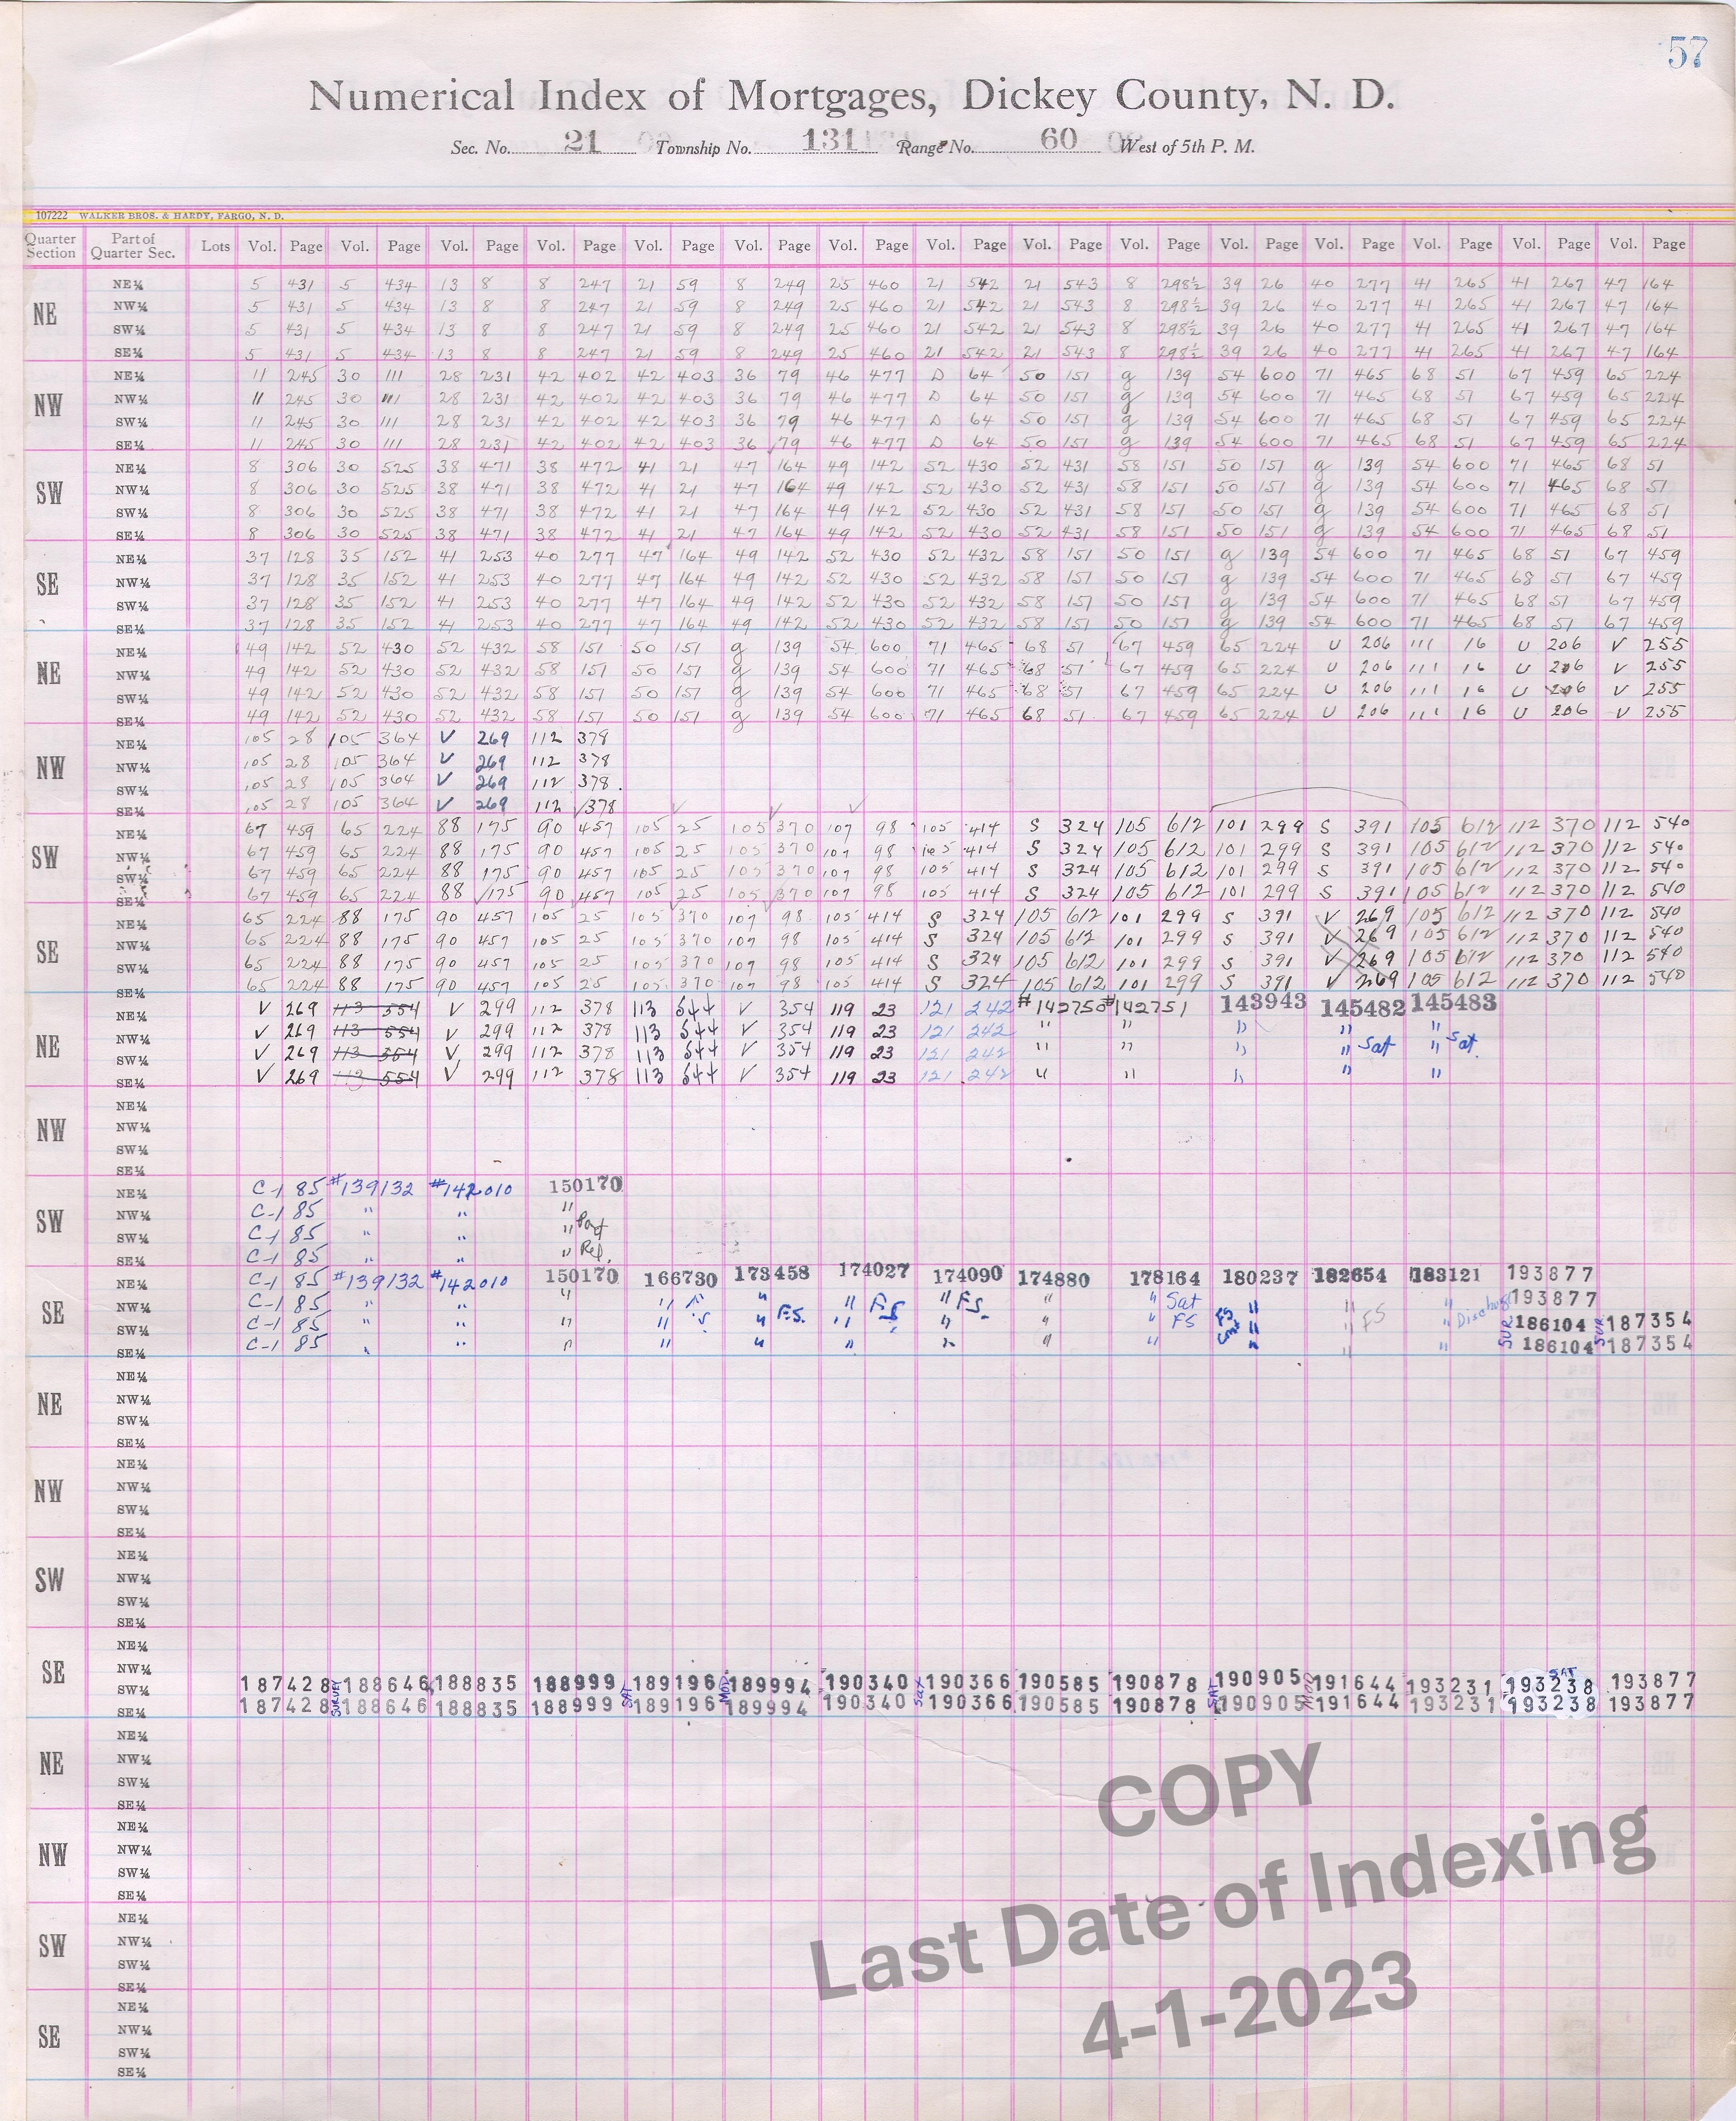 57
Numerical Index of Mortgages, Dickey County, N. D.
Sec. No. 21 Township No. 131 Range No. 60 West of 5th P. M.
107222 WALKER BROS. & HARDY, FARGO, N. D.
Quarter Section Part of Quarter Sec. Lots Vol. Page Vol. Page Vol. Page Vol. Page Vol. Page Vol. Page Vol. Page Vol. Page Vol. Page Vol. Page Vol. Page Vol. Page Vol. Page Vol. Page Vol. Page
NE
NE¼ 5 431 5 434 13 8 8 247 21 59 8 249 25 460 21 542 21 543 8 298½ 39 26 40 277 41 265 41 267 47 164
NW¼ 5 431 5 434 13 8 8 247 21 59 8 249 25 460 21 542 21 543 8 298½ 39 26 40 277 41 265 41 267 47 164
SW¼ 5 431 5 434 13 8 8 247 21 59 8 249 25 460 21 542 21 543 8 298½ 39 26 40 277 41 265 41 267 47 164
SE¼ 5 431 5 434 13 8 8 247 21 59 8 249 25 460 21 542 21 543 8 298½ 39 26 40 277 41 265 41 267 47 164
NW
NE¼ 11 245 30 111 28 231 42 402 42 403 36 79 46 477 D 64 50 151 g 139 54 600 71 465 68 51 67 459 65 224
NW¼ 11 245 30 111 28 231 42 402 42 403 36 79 46 477 D 64 50 151 g 139 54 600 71 465 68 51 67 459 65 224
SW¼ 11 245 30 111 28 231 42 402 42 403 36 79 46 477 D 64 50 151 g 139 54 600 71 465 68 51 67 459 65 224
SE¼ 11 245 30 111 28 231 42 402 42 403 36 79 46 477 D 64 50 151 g 139 54 600 71 465 68 51 67 459 65 224
SW
NE¼ 8 306 30 525 38 471 38 472 41 21 47 164 49 142 52 430 52 431 58 151 50 151 g 139 54 600 71 465 68 51
NW¼ 8 306 30 525 38 471 38 472 41 21 47 164 49 142 52 430 52 431 58 151 50 151 g 139 54 600 71 465 68 51
SW¼ 8 306 30 525 38 471 38 472 41 21 47 164 49 142 52 430 52 431 58 151 50 151 g 139 54 600 71 465 68 51
SE¼ 8 306 30 525 38 471 38 472 41 21 47 164 49 142 52 430 52 431 58 151 50 151 g 139 54 600 71 465 68 51
SE
NE¼ 37 128 35 152 41 253 40 277 47 164 49 142 52 430 52 432 58 151 50 151 g 139 54 600 71 465 68 51 67 459
NW¼ 37 128 35 152 41 253 40 277 47 164 49 142 52 430 52 432 58 151 50 151 g 139 54 600 71 465 68 51 67 459
SW¼ 37 128 35 152 41 253 40 277 47 164 49 142 52 430 52 432 58 151 50 151 g 139 54 600 71 465 68 51 67 459
SE¼ 37 128 35 152 41 253 40 277 47 164 49 142 52 430 52 432 58 151 50 151 g 139 54 600 71 465 68 51 67 459
NE
NE¼ 49 142 52 430 52 432 58 151 50 151 g 139 54 600 71 465 68 51 67 459 65 224 U 206 111 16 U 206 V 255
NW¼ 49 142 52 430 52 432 58 151 50 151 g 139 54 600 71 465 68 51 67 459 65 224 U 206 111 16 U 206 V 255
SW¼ 49 142 52 430 52 432 58 151 50 151 g 139 54 600 71 465 68 51 67 459 65 224 U 206 111 16 U 206 V 255
SE¼ 49 142 52 430 52 432 58 151 50 151 g 139 54 600 71 465 68 51 67 459 65 224 U 206 111 16 U 206 V 255
NW
NE¼ 105 28 105 364 V 269 112 378
NW¼ 105 28 105 364 V 269 112 378
SW¼ 105 28 105 364 V 269 112 378
SE¼ 105 28 105 364 V 269 112 378
SW
NE¼ 67 459 65 224 88 175 90 457 105 25 105 370 107 98 105 414 S 324 105 612 101 299 S 391 105 612 112 370 112 540
NW¼ 67 459 65 224 88 175 90 457 105 25 105 370 107 98 105 414 S 324 105 612 101 299 S 391 105 612 112 370 112 540
SW¼ 67 459 65 224 88 175 90 457 105 25 105 370 107 98 105 414 S 324 105 612 101 299 S 391 105 612 112 370 112 540
SE¼ 67 459 65 224 88 175 90 457 105 25 105 370 107 98 105 414 S 324 105 612 101 299 S 391 105 612 112 370 112 540
SE
NE¼ 65 224 88 175 90 457 105 25 105 370 107 98 105 414 S 324 105 612 101 299 S 391 V 269 105 612 112 370 112 540
NW¼ 65 224 88 175 90 457 105 25 105 370 107 98 105 414 S 324 105 612 101 299 S 391 V 269 105 612 112 370 112 540
SW¼ 65 224 88 175 90 457 105 25 105 370 107 98 105 414 S 324 105 612 101 299 S 391 V 269 105 612 112 370 112 540
SE¼ 65 224 88 175 90 457 105 25 105 370 107 98 105 414 S 324 105 612 101 299 S 391 V 269 105 612 112 370 112 540
NE
NE¼ V 269 113 554 V 299 112 378 113 544 V 354 119 23 121 242 #142750 #142751 143943 145482 145483
NW¼ V 269 113 554 V 299 112 378 113 544 V 354 119 23 121 242 " " " " "
SW¼ V 269 113 554 V 299 112 378 113 544 V 354 119 23 121 242 " " " " Sat " Sat.
SE¼ V 269 113 554 V 299 112 378 113 544 V 354 119 23 121 242 " " " " "
NW
NE¼
NW¼
SW¼
SE¼
SW
NE¼ C-1 85 #139132 #142010 150170
NW¼ C-1 85 " " "
SW¼ C-1 85 " " " Part
SE¼ C-1 85 " " " Rel.
SE
NE¼ C-1 85 #139132 #142010 150170 166730 173458 174027 174090 174880 178164 180237 182654 183121 193877
NW¼ C-1 85 " " " " " " " FS " " Sat " " " Discharge 193877
SW¼ C-1 85 " " " " " F.S. " FS " " " FS FS " " FS " SUR. 186104 SUR. 187354
SE¼ C-1 85 " " " " " " " " " Cont " " " 186104 187354
NE
NE¼
NW¼
SW¼
SE¼
NW
NE¼
NW¼
SW¼
SE¼
SW
NE¼
NW¼
SW¼
SE¼
SE
NE¼
NW¼
SW¼ 187428 SURVEY 188646 188835 188999 SAT 189196 MOD 189994 190340 Sat 190366 190585 190878 SAT 190905 MOD 191644 193231 SAT 193238 193877
SE¼ 187428 188646 188835 188999 189196 189994 190340 190366 190585 190878 190905 191644 193231 193238 193877
NE
NE¼
NW¼
SW¼
SE¼
NW
NE¼
NW¼
SW¼
SE¼
SW
NE¼
NW¼
SW¼
SE¼
SE
NE¼
NW¼
SW¼
SE¼
COPY
Last Date of Indexing
4-1-2023